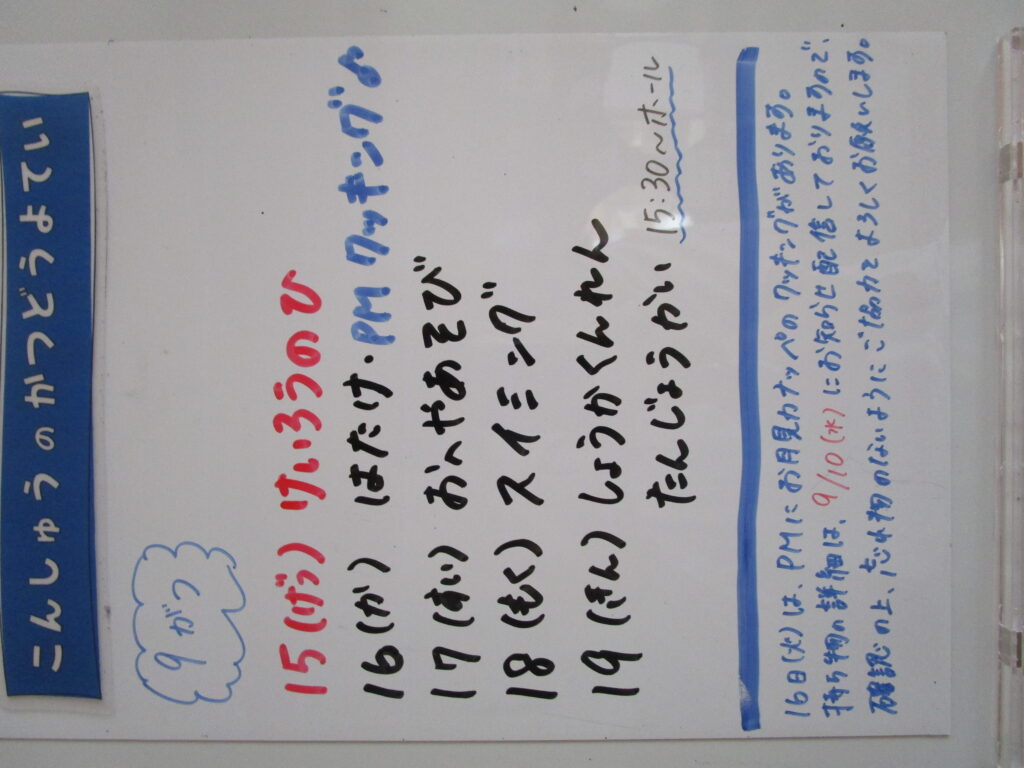 こんしゅうのかつどうよてい
9がつ
15(げつ) けいろうのひ
16(か) はたけ・PMクッキング♪
17(すい) おへやあそび
18(もく) スイミング
19(きん) しょうかくんれん
たんじょうかい 15:30〜ホール
16日(火)は、PMにお月見カナッペのクッキングがあります。
持ち物の詳細は、9/10(水)にお知らせ配信しておりますので、
確認の上、忘れ物のないようにご協力をよろしくお願いします。